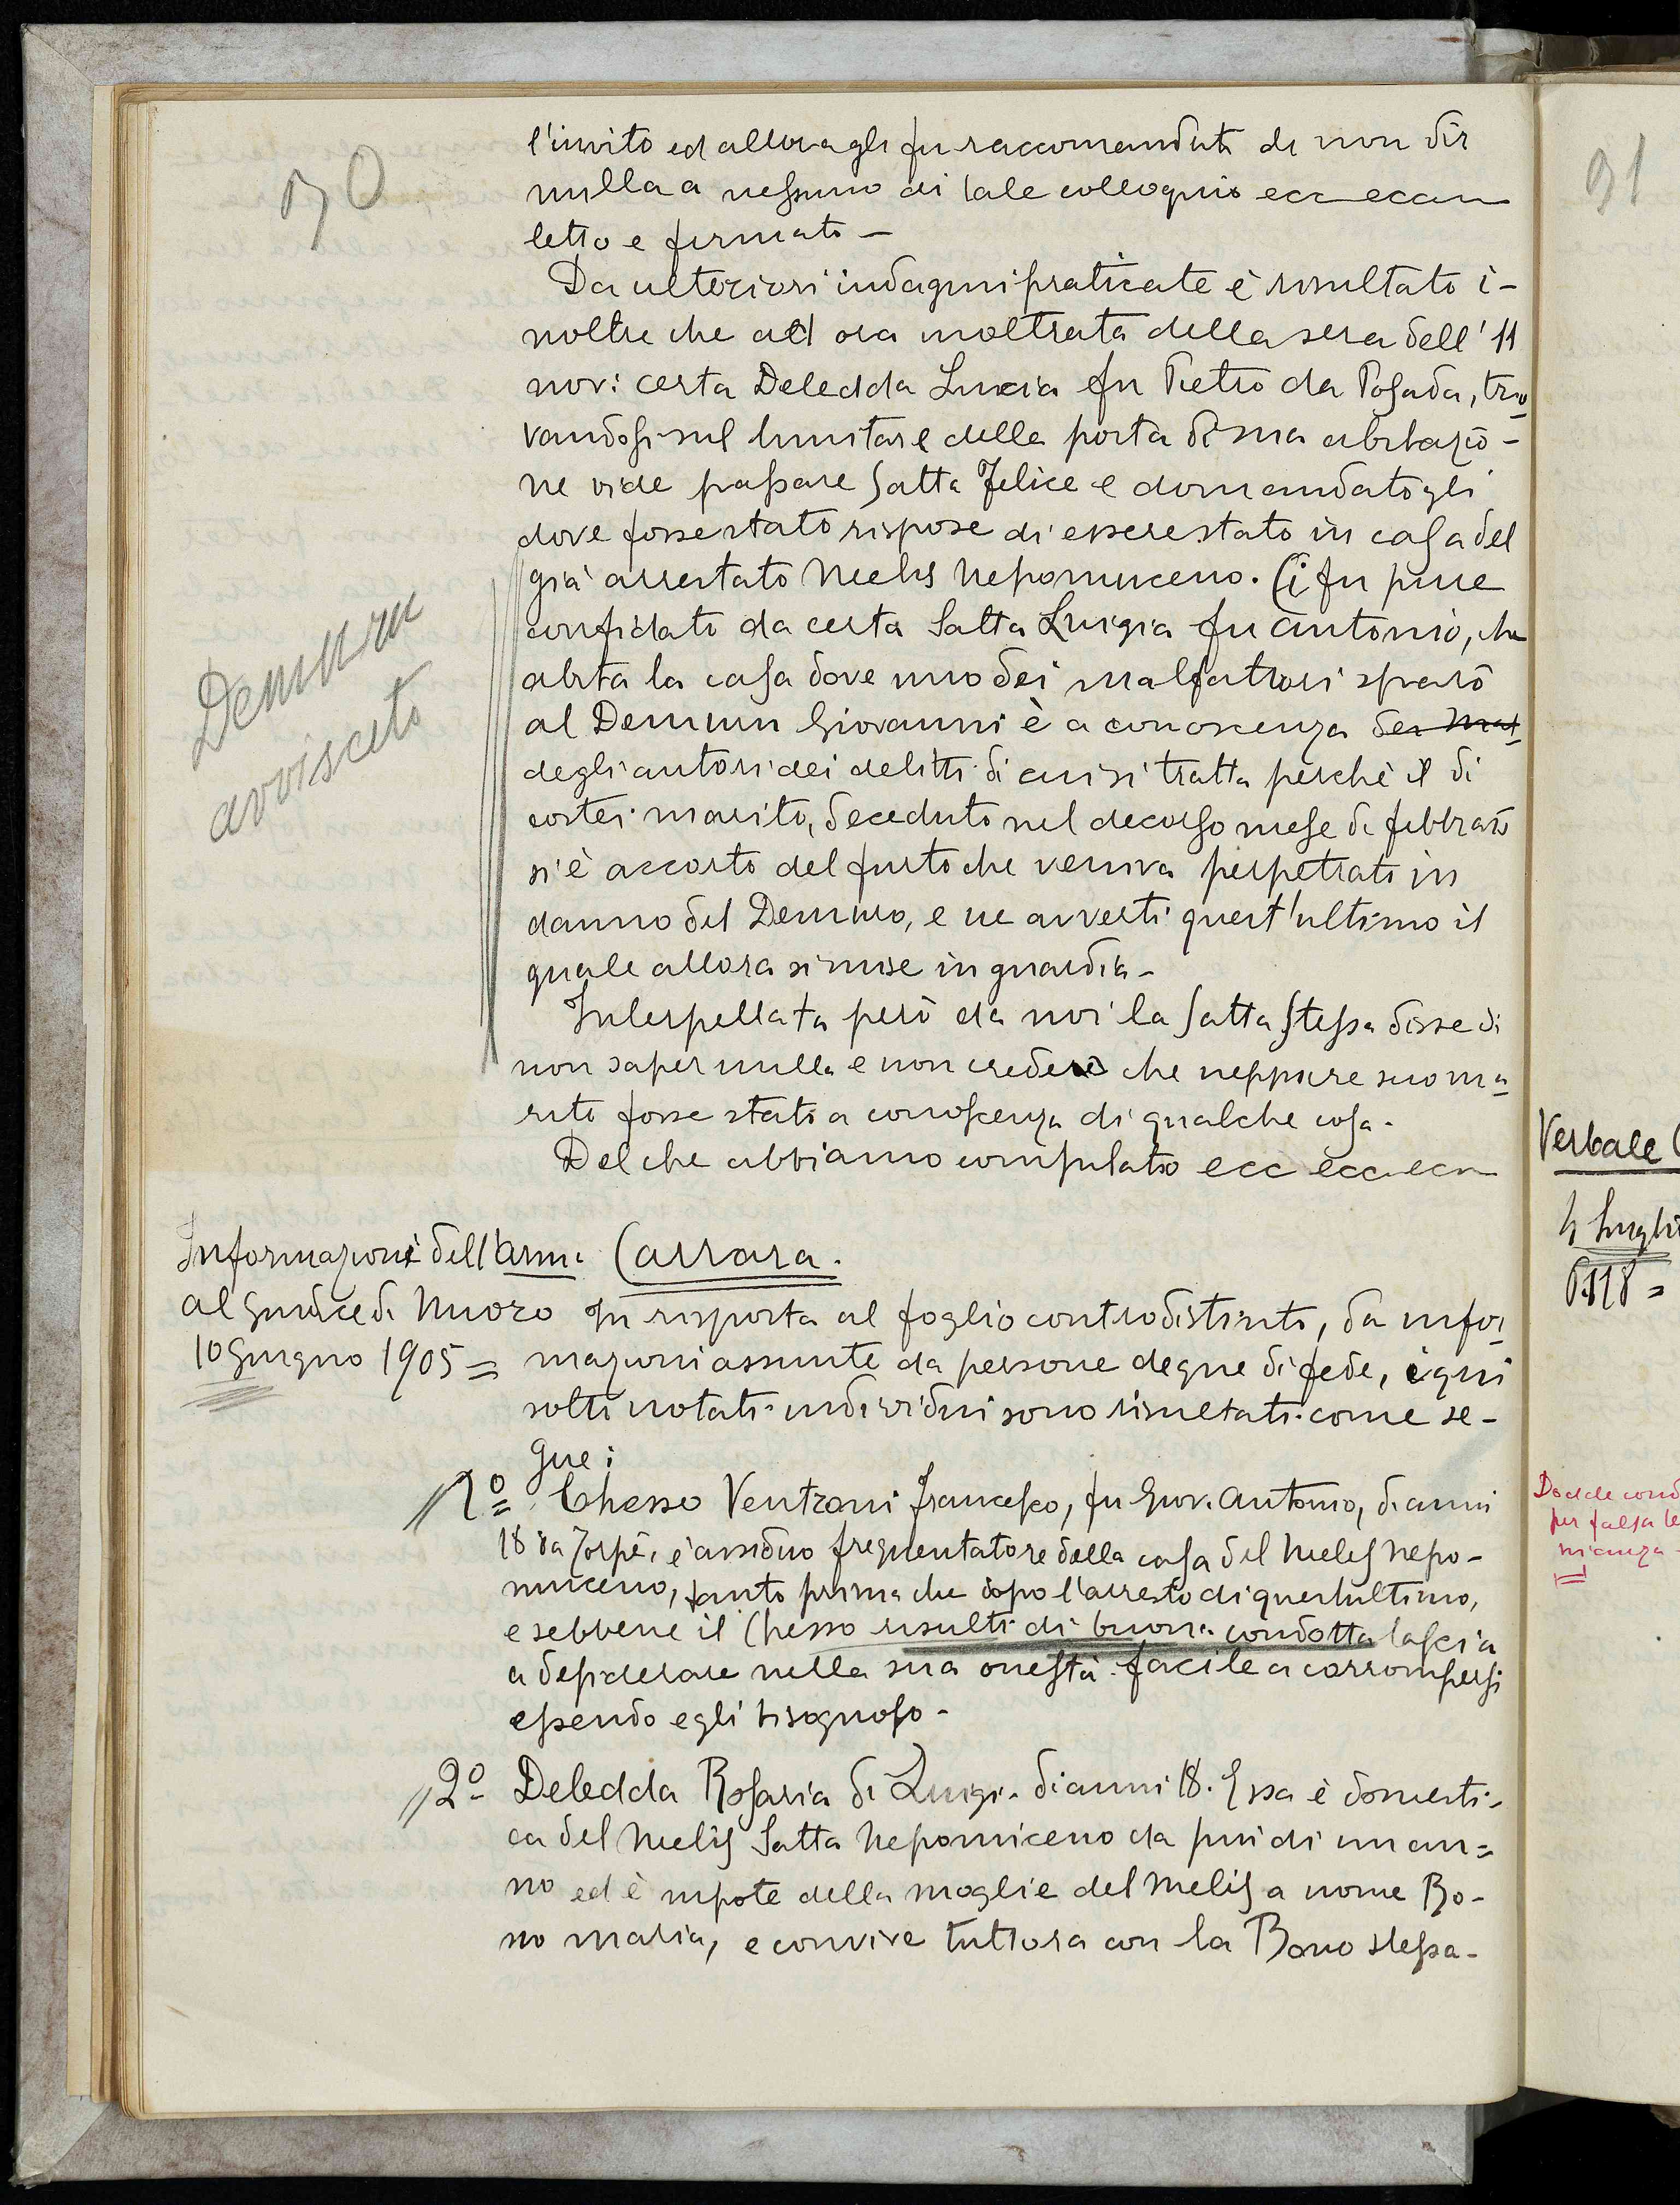 90
l'invito ed allora gli fu raccomandato di non dir
nulla a nessuno di tale colloquio ecc ecc
letto e firmato –
Da ulteriori indagini praticate è risultato i-
noltre che ad ora inoltrata della sera dell' 11
nov: certa Deledda Lucia fu Pietro da Posada, tro
vandosi sul limitare della porta di sua abitazio-
ne vide passare Satta Felice e domandatogli
dove fosse stato rispose di essere stato in casa del
già arrestato Melis Nepomuceno. Ci fu pure
confidato da certa Satta Luigia fu Antonio, che
abita la casa dove uno dei malfattori sparò
al Demuru Giovanni è a conoscenza dei mal
degli autori dei delitti di cui si tratta perchè il di
costei marito, deceduto nel decorso mese di febbraio
si è accorto del furto che veniva perpetrato in
danno del Demuro, e ne avvertì quest'ultimo il
quale allora si mise in guardia –
Demuru
avvisato
Interpellata però da noi la Satta stessa disse di
non saper nulla e non credere che neppure suo ma
rito fosse stato a conoscenza di qualche cosa.
Del che abbiamo compilato ecc ecc ecc
Informazioni dell'arma Carrara.
al Giudice di Nuoro
10 Giugno 1905 =
In risposta al foglio controdistinto, da infor
mazioni assunte da persone degne di fede, i qui
sotto notati individui sono risultati come se-
gue:
1º Chesso Ventroni Francesco, fu Giov. Antonio, di anni
18 da Torpè, è assiduo frequentatore della casa del Melis Nepo-
muceno, tanto prima che dopo l'arresto di quest'ultimo,
e sebbene il Chesso risulti di buona condotta lascia
a desiderare nella sua onestà facile a corrompersi
essendo egli bisognoso –
2º Deledda Rosaria di Luigi di anni 18. Essa è domesti-
ca del Melis Satta Nepomiceno da più di un an=
no ed è nipote della moglie del Melis a nome Bo-
no Maria, e convive tuttora con la Bono stessa –
91
Verbale
4 Luglio
118 =
per falsa te
nianza